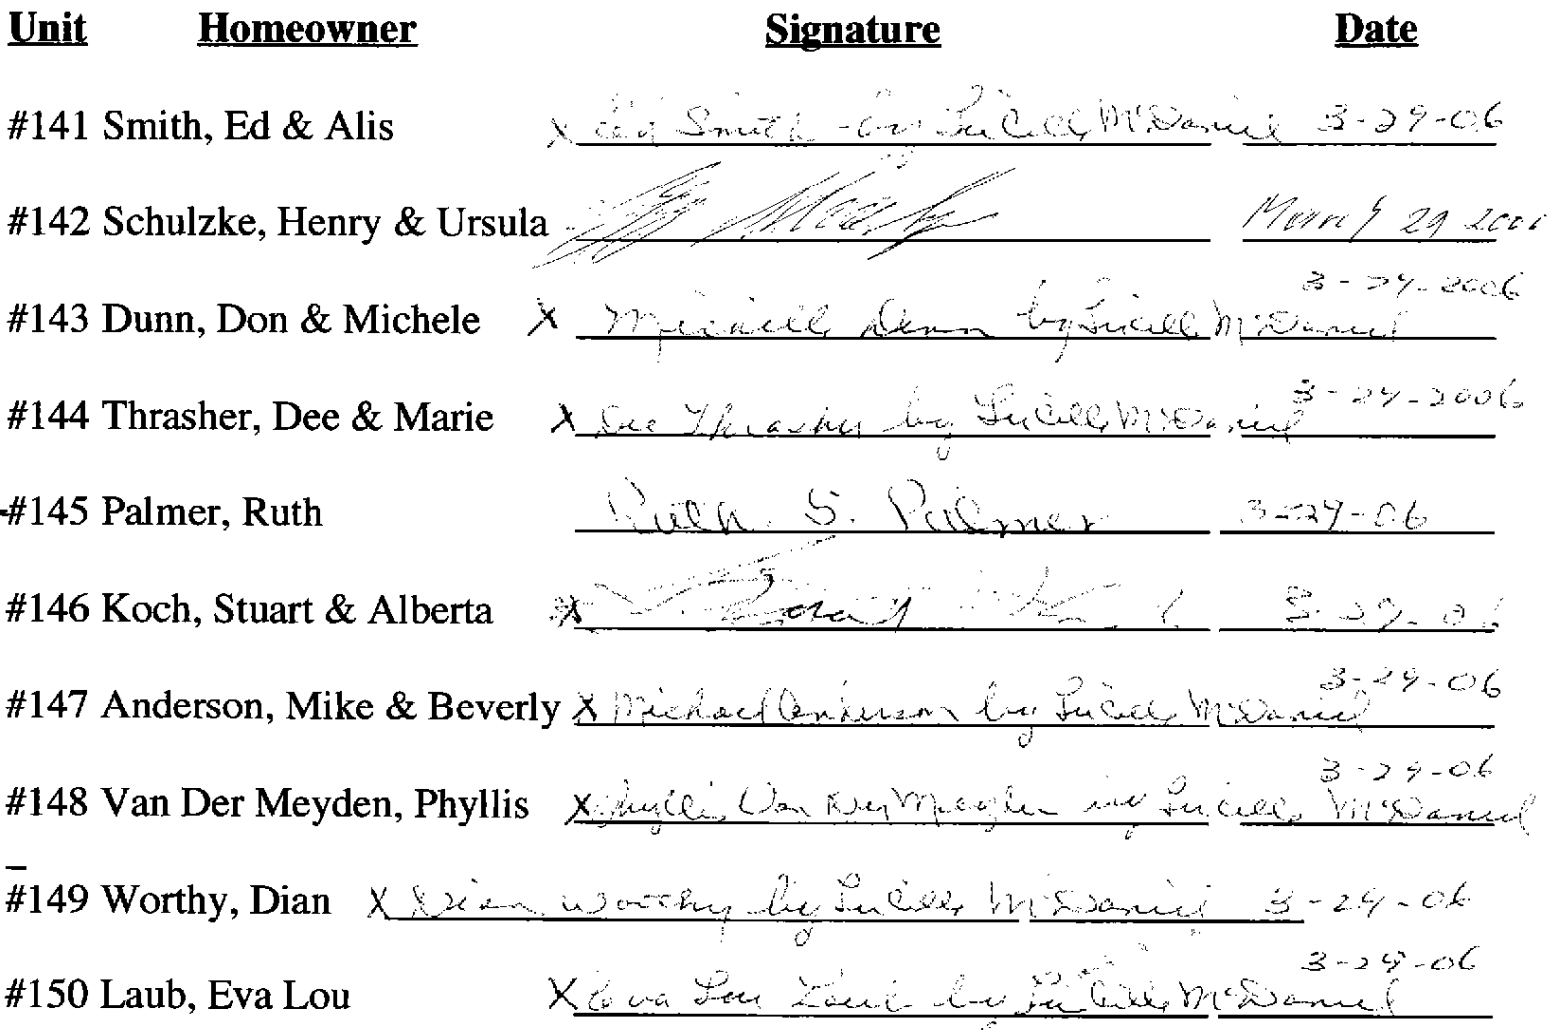 Unit Homeowner Signature Date
#141 Smith, Ed & Alis X Ed Smith - by Lucille McDaniel 3-29-06
#142 Schulzke, Henry & Ursula March 29 2006
3-29-2006
#143 Dunn, Don & Michele X Michelle Dunn by Lucille McDaniel
3-29-2006
#144 Thrasher, Dee & Marie X Dee Thrasher by Lucille McDaniel
#145 Palmer, Ruth Ruth S. Palmer 3-29-06
#146 Koch, Stuart & Alberta X 3-29-06
3-29-06
#147 Anderson, Mike & Beverly X Michael Anderson by Lucille McDaniel
3-29-06
#148 Van Der Meyden, Phyllis X Phyllis Van Der by Lucille McDaniel
#149 Worthy, Dian X Dian Worthy by Lucille McDaniel 3-29-06
3-29-06
#150 Laub, Eva Lou X Eva Lou Laub by Lucille McDaniel